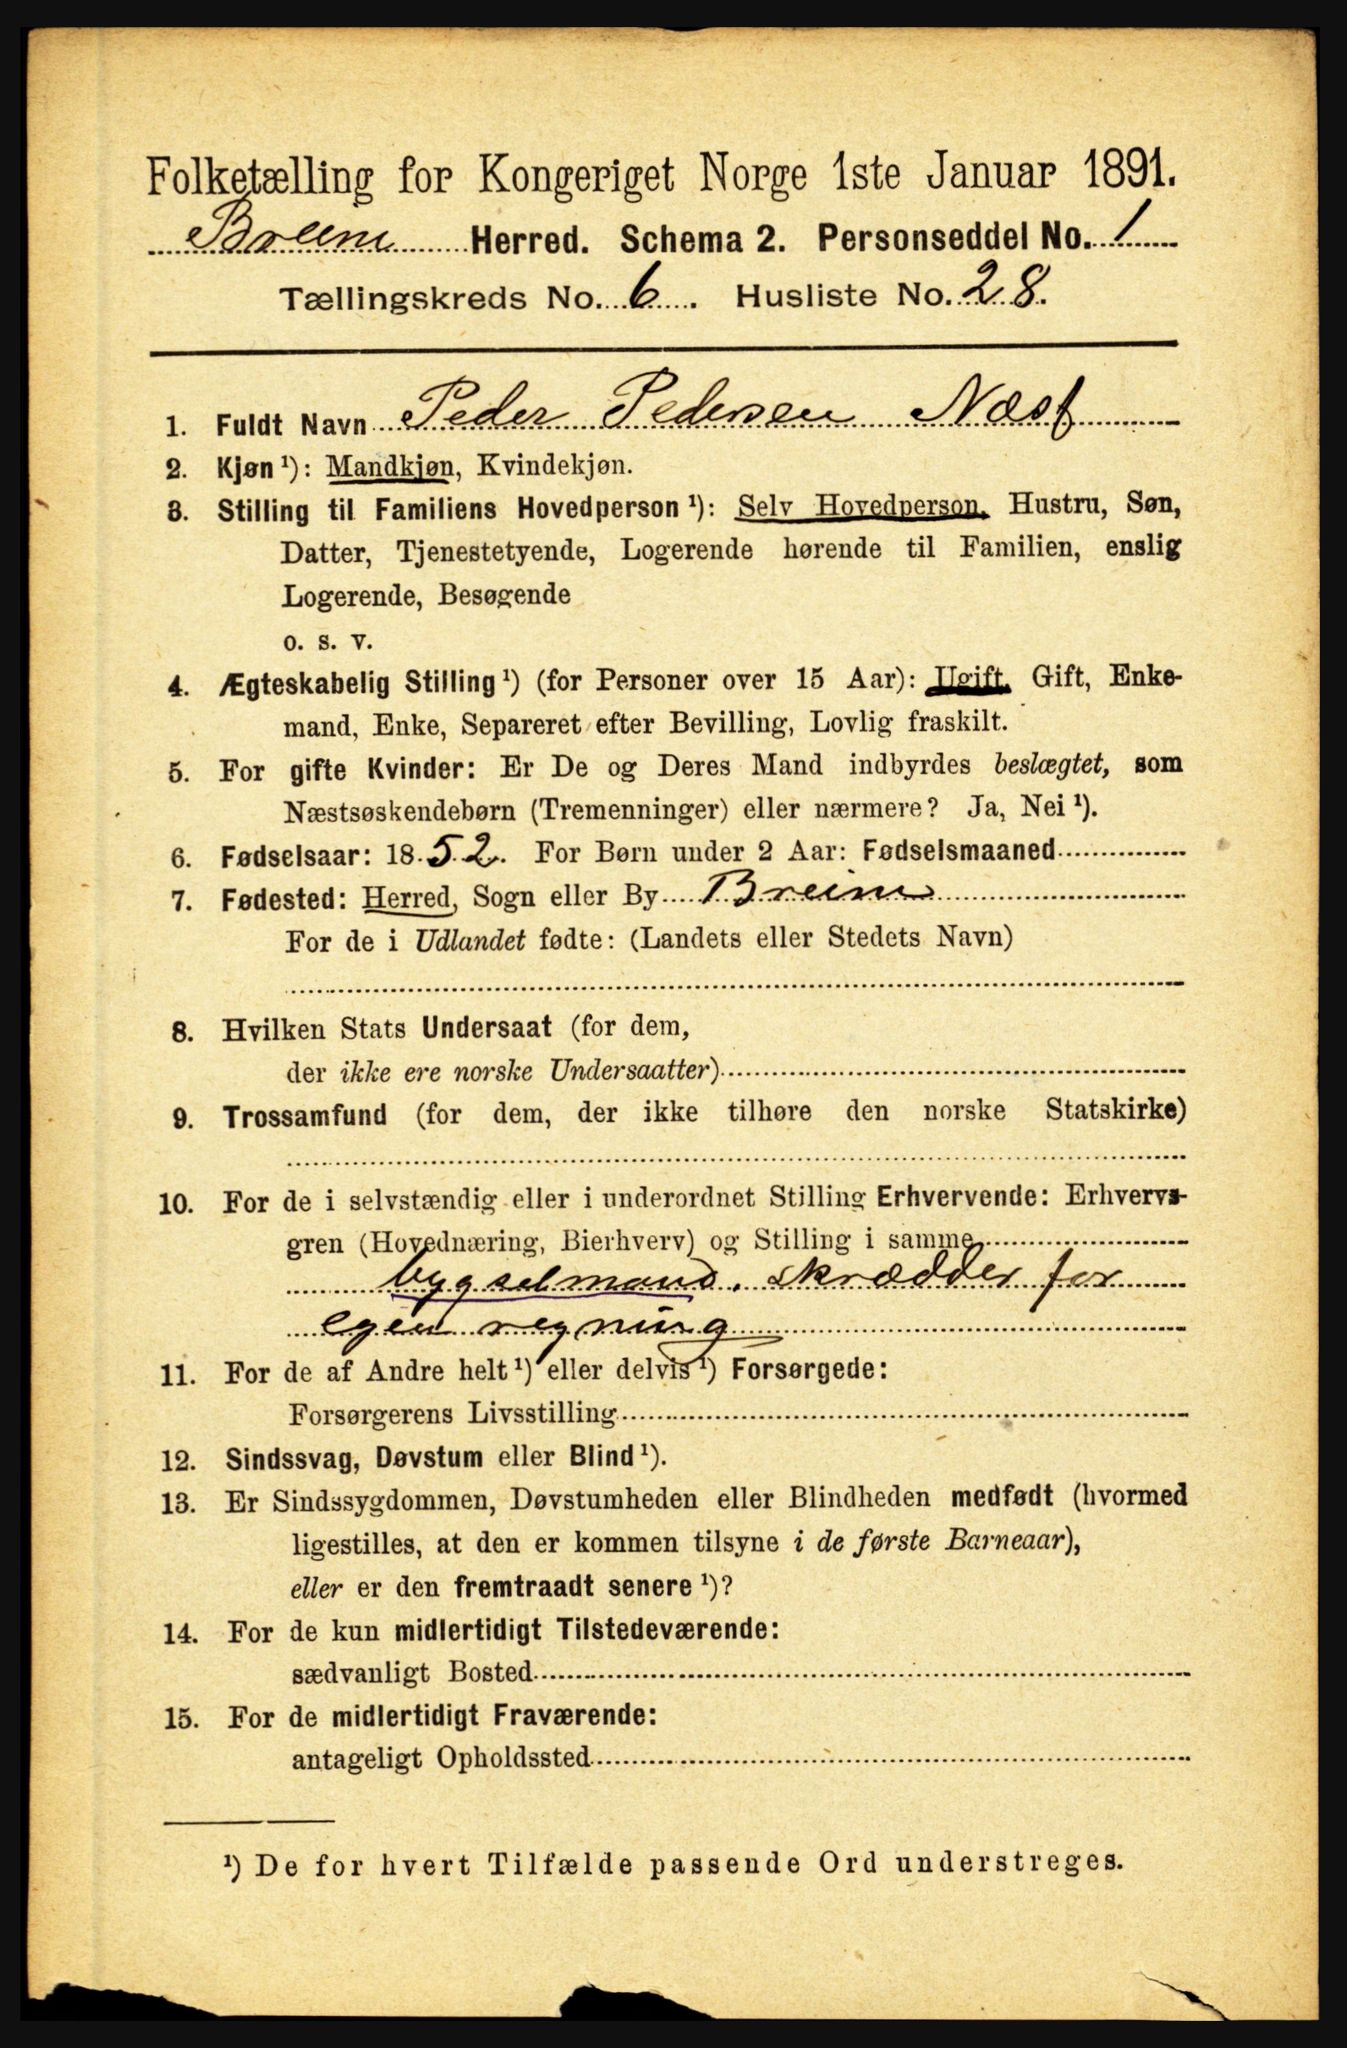 Folketælling for Kongeriget Norge 1ste Januar 1891.
Breim Herred. Schema 2. Personseddel No. 1
Tællingskreds No. 6. Husliste No. 28.
1. Fuldt Navn Peder Pedersen Næss
2. Kjøn¹): Mandkjøn, Kvindekjøn.
3. Stilling til Familiens Hovedperson¹): Selv Hovedperson, Hustru, Søn,
Datter, Tjenestetyende, Logerende hørende til Familien, enslig
Logerende, Besøgende
o. s. v.
4. Ægteskabelig Stilling¹) (for Personer over 15 Aar): Ugift, Gift, Enke-
mand, Enke, Separeret efter Bevilling, Lovlig fraskilt.
5. For gifte Kvinder: Er De og Deres Mand indbyrdes beslægtet, som
Næstsøskendebørn (Tremenninger) eller nærmere? Ja, Nei¹).
6. Fødselsaar: 1852. For Børn under 2 Aar: Fødselsmaaned
7. Fødested: Herred, Sogn eller By Breim
For de i Udlandet fødte: (Landets eller Stedets Navn)
8. Hvilken Stats Undersaat (for dem,
der ikke ere norske Undersaatter)
9. Trossamfund (for dem, der ikke tilhøre den norske Statskirke)
10. For de i selvstændig eller i underordnet Stilling Erhvervende: Erhvervs-
gren (Hovednæring, Bierhverv) og Stilling i samme
bygselmand. skrædder for
egen regning
11. For de af Andre helt¹) eller delvis¹) Forsørgede:
Forsørgerens Livsstilling
12. Sindssvag, Døvstum eller Blind¹).
13. Er Sindssygdommen, Døvstumheden eller Blindheden medfødt (hvormed
ligestilles, at den er kommen tilsyne i de første Barneaar),
eller er den fremtraadt senere¹)?
14. For de kun midlertidigt Tilstedeværende:
sædvanligt Bosted
15. For de midlertidigt Fraværende:
antageligt Opholdssted
¹) De for hvert Tilfælde passende Ord understreges.